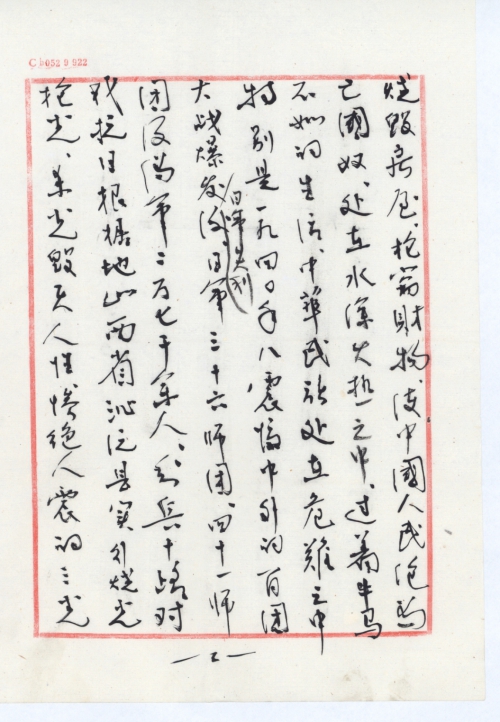 Ch052 9 922
烧毁房屋、抢夺財物、使中國人民沦为
亡國奴、处在水深火热之中、过着牛马
不如的生活、中華民族处在危难之中
特别是一九四〇年八震惊中外的百团
大战爆发后、日军三十六师团、四十一师
日军大利
团及伪军二万七千余人、分兵十路对
我抗日根据地山西省沁沅县实行烧光
抢光、杀光毁灭人性惨绝人寰的三光
—2—